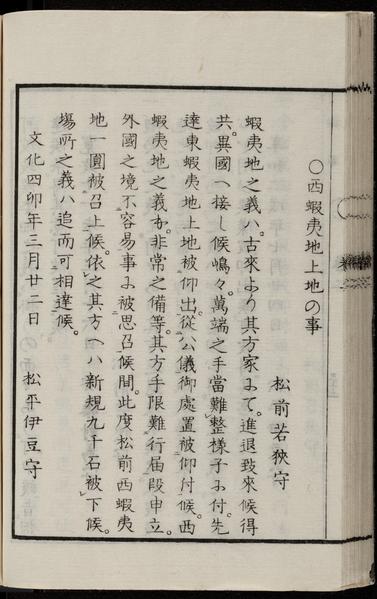 〇西蝦夷地上地の事
松前若狹守
蝦夷地之義ハ。古來より其方家ニて。進退致來候得
共。異國ヘ接し候嶋々。萬端之手當難整樣子ニ付。先
達東蝦夷地上地被仰出。從公儀御處置被仰付候。西
蝦夷地之義も。非常之備等。其方手限難行届段申立。
外國之境不容易事ニ被思召候間。此度松前西蝦夷
地一圓被召上候。依之其方ヘハ新規九千石被下候。
塲所之義ハ追而可相達候。
文化四卯年三月廿二日
松平伊豆守